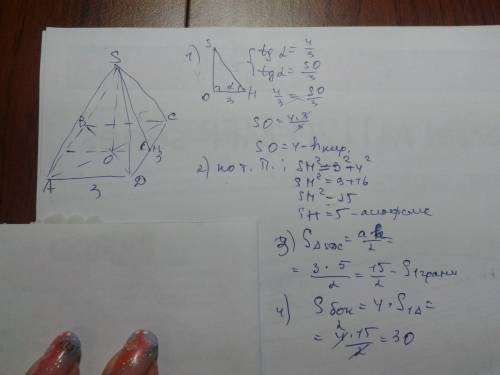 S
B
C
K
H
3
O
A
D
3
1)
S
O
α
3
H
{ tg α = 4/3
tg α = SO/3
4/3 = SO/3
SO = 4·3/3
SO = 4 - h пир.
2) по т. П.: SH² = 3² + 4²
SH² = 9 + 16
SH² = 25
SH = 5 - апофема
3) S△SDC = ah/2 =
= 3·5/2 = 15/2 - S 1 грани
4) Sбок = 4·S1△ =
= 4·15/2 = 30
2